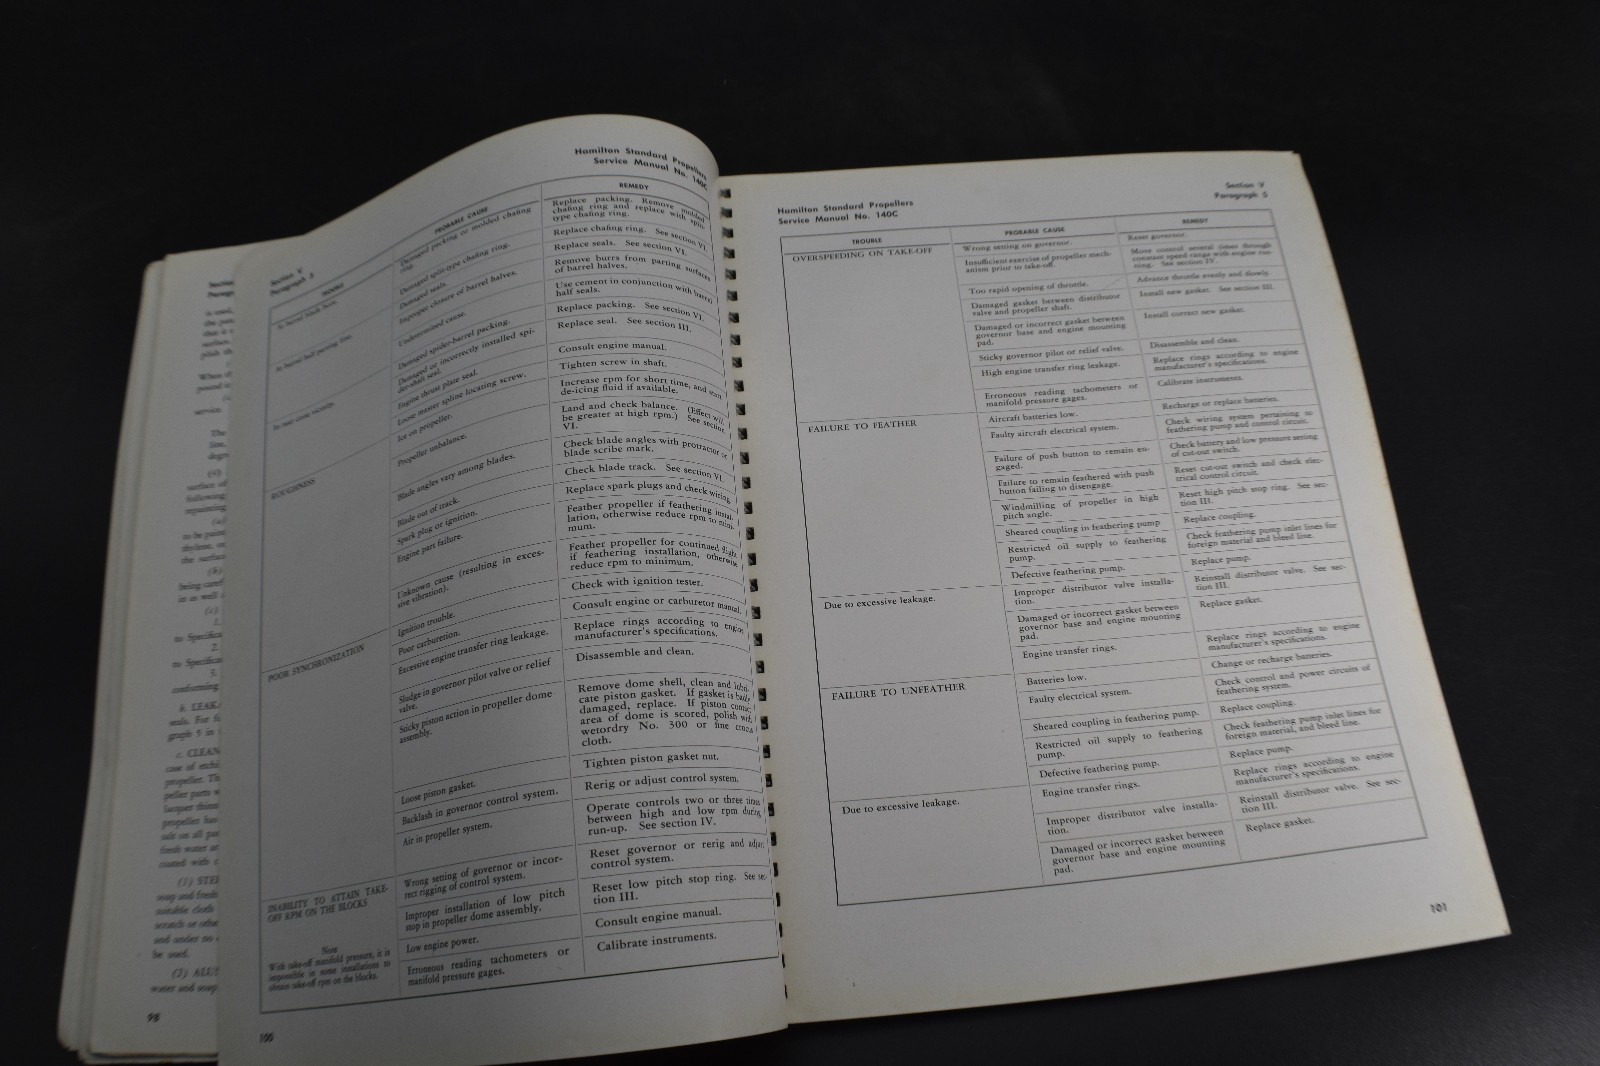 98
Section V
Paragraph 5
Hamilton Standard Propellers
Service Manual No. 140C
TROUBLE
PROBABLE CAUSE
REMEDY
Damaged packing or molded chafing
ring.
Replace packing. Remove molded
chafing ring and replace with split
type chafing ring.
Damaged split-type chafing ring.
Replace chafing ring. See section VI.
Damaged seals.
Replace seals. See section VI.
Improper closure of barrel halves.
Remove burrs from parting surfaces
of barrel halves.
Undetermined cause.
Use cement in conjunction with barrel
half seals.
Damaged spider-barrel packing.
Replace packing. See section VI.
Damaged or incorrectly installed spi-
der-shaft seal.
Replace seal. See section III.
Engine thrust plate seal.
Consult engine manual.
Loose master spline locating screw.
Tighten screw in shaft.
ROUGHNESS
Ice on propeller.
Increase rpm for short time, and start
de-icing fluid if available.
Propeller unbalance.
Land and check balance. (Effect will
be greater at high rpm.) See section
VI.
Blade angles vary among blades.
Check blade angles with protractor or
blade scribe mark.
Blade out of track.
Check blade track. See section VI.
Spark plug or ignition.
Replace spark plugs and check wiring.
Engine part failure.
Feather propeller if feathering instal-
lation, otherwise reduce rpm to mini-
mum.
Unknown cause (resulting in exces-
sive vibration).
Feather propeller for continued flight,
if feathering installation, otherwise
reduce rpm to minimum.
POOR SYNCHRONIZATION
Ignition trouble.
Check with ignition tester.
Poor carburetion.
Consult engine or carburetor manual.
Excessive engine transfer ring leakage.
Replace rings according to engine
manufacturer's specifications.
Sludge in governor pilot valve or relief
valve.
Disassemble and clean.
Sticky piston action in propeller dome
assembly.
Remove dome shell, clean and lubri-
cate piston gasket. If gasket is badly
damaged, replace. If piston contact
area of dome is scored, polish with
wetordry No. 300 or fine crocus
cloth.
Loose piston gasket.
Tighten piston gasket nut.
Backlash in governor control system.
Rerig or adjust control system.
Air in propeller system.
Operate controls two or three times
between high and low rpm during
run-up. See section IV.
INABILITY TO ATTAIN TAKE-
OFF RPM ON THE BLOCKS
Wrong setting of governor or incor-
rect rigging of control system.
Reset governor or rerig and adjust
control system.
Improper installation of low pitch
stop in propeller dome assembly.
Reset low pitch stop ring. See sec-
tion III.
Note
With take-off manifold pressure, it is
impossible in some installations to
obtain take-off rpm on the blocks.
Low engine power.
Consult engine manual.
Erroneous reading tachometers or
manifold pressure gages.
Calibrate instruments.
100
Hamilton Standard Propellers
Service Manual No. 140C
Section V
Paragraph 5
TROUBLE
PROBABLE CAUSE
REMEDY
OVERSPEEDING ON TAKE-OFF
Wrong setting on governor.
Reset governor.
Insufficient exercise of propeller mech-
anism prior to take-off.
Move control several times through
constant speed range with engine run-
ning. See section IV.
Too rapid opening of throttle.
Advance throttle evenly and slowly.
Damaged gasket between distributor
valve and propeller shaft.
Install new gasket. See section III.
Damaged or incorrect gasket between
governor base and engine mounting
pad.
Install correct new gasket.
Sticky governor pilot or relief valve.
Disassemble and clean.
High engine transfer ring leakage.
Replace rings according to engine
manufacturer's specifications.
Erroneous reading tachometers or
manifold pressure gages.
Calibrate instruments.
FAILURE TO FEATHER
Aircraft batteries low.
Recharge or replace batteries.
Faulty aircraft electrical system.
Check wiring system pertaining to
feathering pump and control circuit.
Failure of push button to remain en-
gaged.
Check battery and low pressure setting
of cut-out switch.
Failure to remain feathered with push
button failing to disengage.
Reset cut-out switch and check elec-
trical control circuit.
Windmilling of propeller in high
pitch angle.
Reset high pitch stop ring. See sec-
tion III.
Sheared coupling in feathering pump
Replace coupling.
Restricted oil supply to feathering
pump.
Check feathering pump inlet lines for
foreign material and bleed line.
Defective feathering pump.
Replace pump.
Due to excessive leakage.
Improper distributor valve installa-
tion.
Reinstall distributor valve. See sec-
tion III.
Damaged or incorrect gasket between
governor base and engine mounting
pad.
Replace gasket.
Engine transfer rings.
Replace rings according to engine
manufacturer's specifications.
FAILURE TO UNFEATHER
Batteries low.
Change or recharge batteries.
Faulty electrical system.
Check control and power circuits of
feathering system.
Sheared coupling in feathering pump.
Replace coupling.
Restricted oil supply to feathering
pump.
Check feathering pump inlet lines for
foreign material, and bleed line.
Defective feathering pump.
Replace pump.
Due to excessive leakage.
Engine transfer rings.
Replace rings according to engine
manufacturer's specifications.
Improper distributor valve installa-
tion.
Reinstall distributor valve. See sec-
tion III.
Damaged or incorrect gasket between
governor base and engine mounting
pad.
Replace gasket.
101